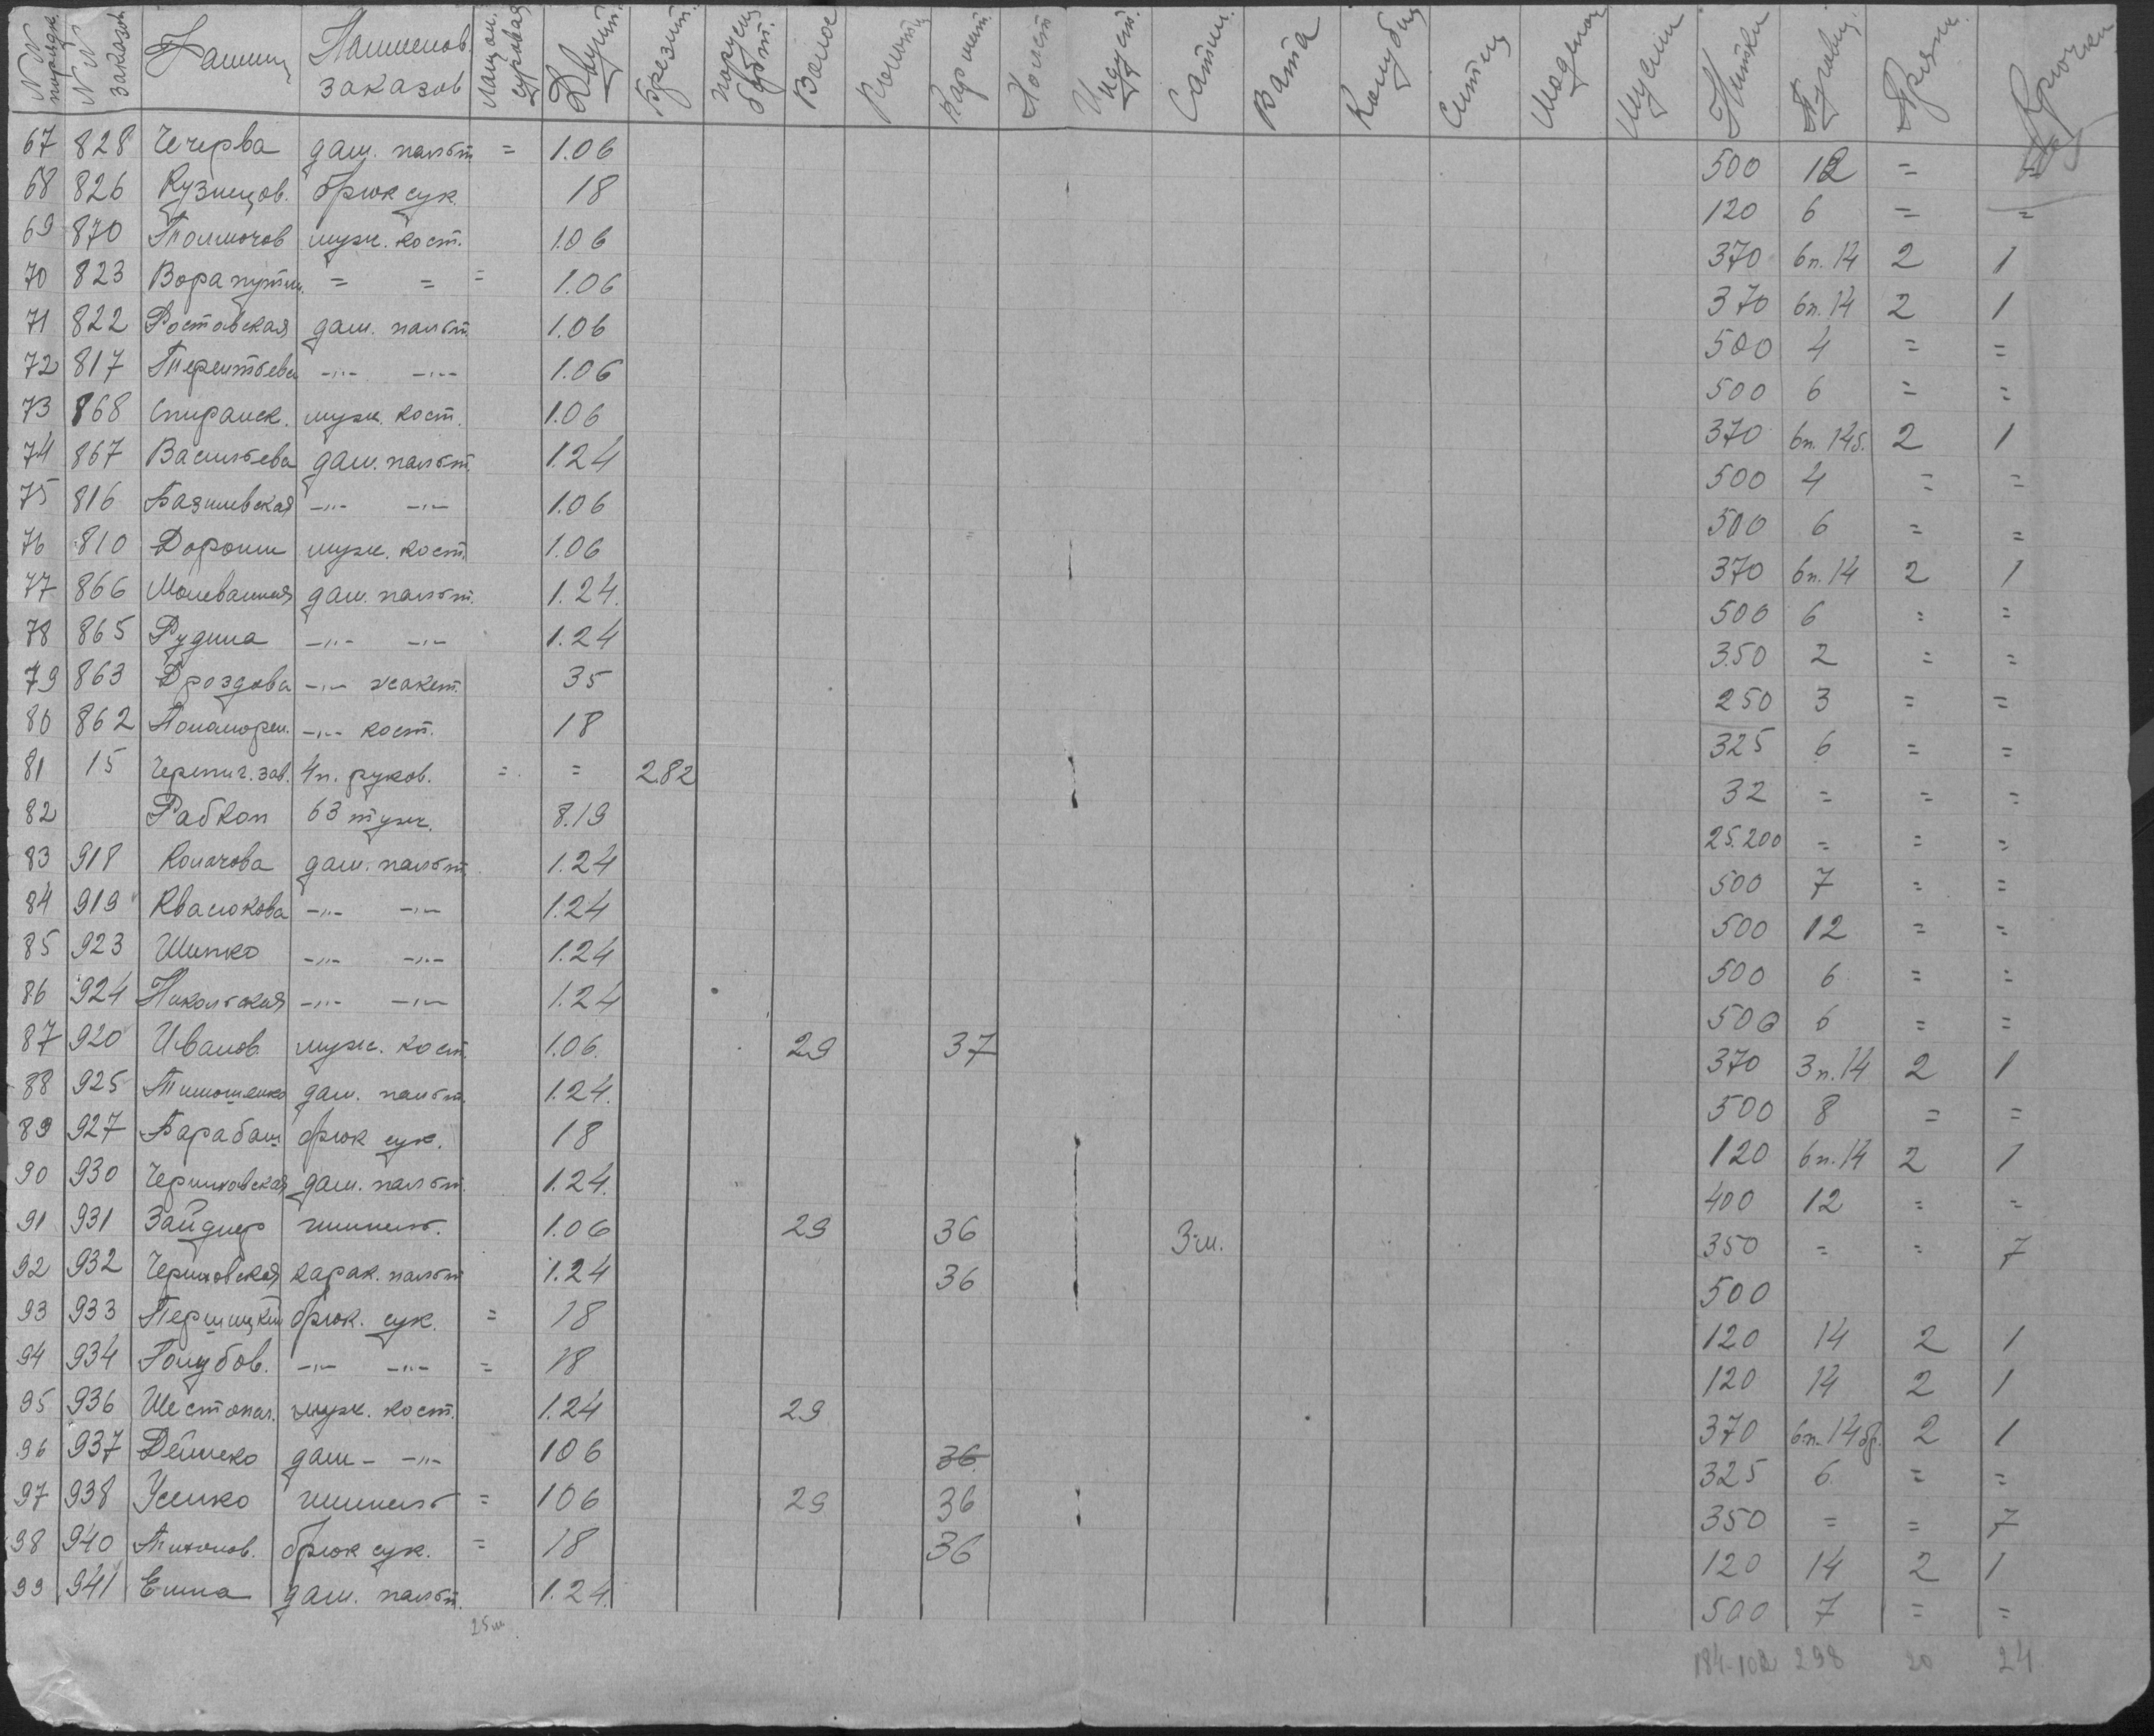 № № порядк. № № заказов Фамил. Наименов. заказов Двунит. Брезент. Волос Карманн. Холст Сатин. Вата Ситец Мадепол Нитки Пуговиц. Пряжк. Крючки
67 828 Чечерва дам. пальт = 1.06 500 12 = =
68 826 Кузнецов. брюк сук. 18 120 6 = =
69 870 Толмочов муж. кост. 1.06 370 6п.14 2 1
70 823 = = = 1.06 370 6п.14 2 1
71 822 Ростовская дам. пальт. 1.06 500 4 = =
72 817 Терентьева -"- -"- 1.06 500 6 = =
73 868 Спиранск. муж. кост. 1.06 370 6п.14б. 2 1
74 867 Васильева дам. пальт. 1.24 500 4 = =
75 816 Базилевская -"- -"- 1.06 500 6 = =
76 810 Доронин муж. кост. 1.06 370 6п.14 2 1
77 866 Молеванная дам. пальт. 1.24. 500 6 = =
78 865 Рудина -"- -"- 1.24 350 2 = =
79 863 Дроздова -"- жакет. 35 250 3 = =
80 862 Понаморен. -"- кост. 18 325 6 = =
81 15 Черепич. зав. 4п. руков. = = 2.82 32 = = =
82 Рабкоп 63 туж. 8.19 25.200 = = =
83 918 Колачова дам. пальт. 1.24 500 7 = =
84 919 Квасюкова -"- -"- 1.24 500 12 = =
85 923 Шипко -"- -"- 1.24 500 6 = =
86 924 Никольская -"- -"- 1.24 500 6 = =
87 920 Иванов. муж. кост. 1.06. 29 37 370 3п.14 2 1
88 925 Тимошенко дам. пальт. 1.24. 500 8 = =
89 927 Барабаш брюк сук. 18 120 6п.14 2 1
90 930 Черниховская дам. пальт. 1.24. 400 12 = =
91 931 Зайднер шинель. 1.06 29 36 3-м. 350 = = 7
92 932 Черниховская карак. пальт 1.24 36 500
93 933 брюк. сук. = 18 120 14 2 1
94 934 Голубов. -"- -"- = 18 120 14 2 1
95 936 Шестопал. муж. кост. 1.24 29 370 6п.14бр. 2 1
96 937 Дейнеко дам - -"- 106 36 325 6 = =
97 938 Усенко шинель = 106 29 36 350 = = 7
98 940 Тихонов. брюк сук. = 18 36 120 14 2 1
99 941 Енина дам. пальт. 1.24. 500 7 = =
25м
184-102 298 20 24